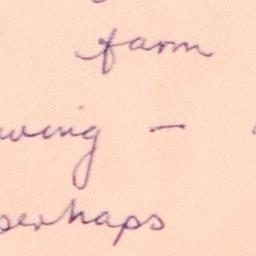 farm
wing —
perhaps